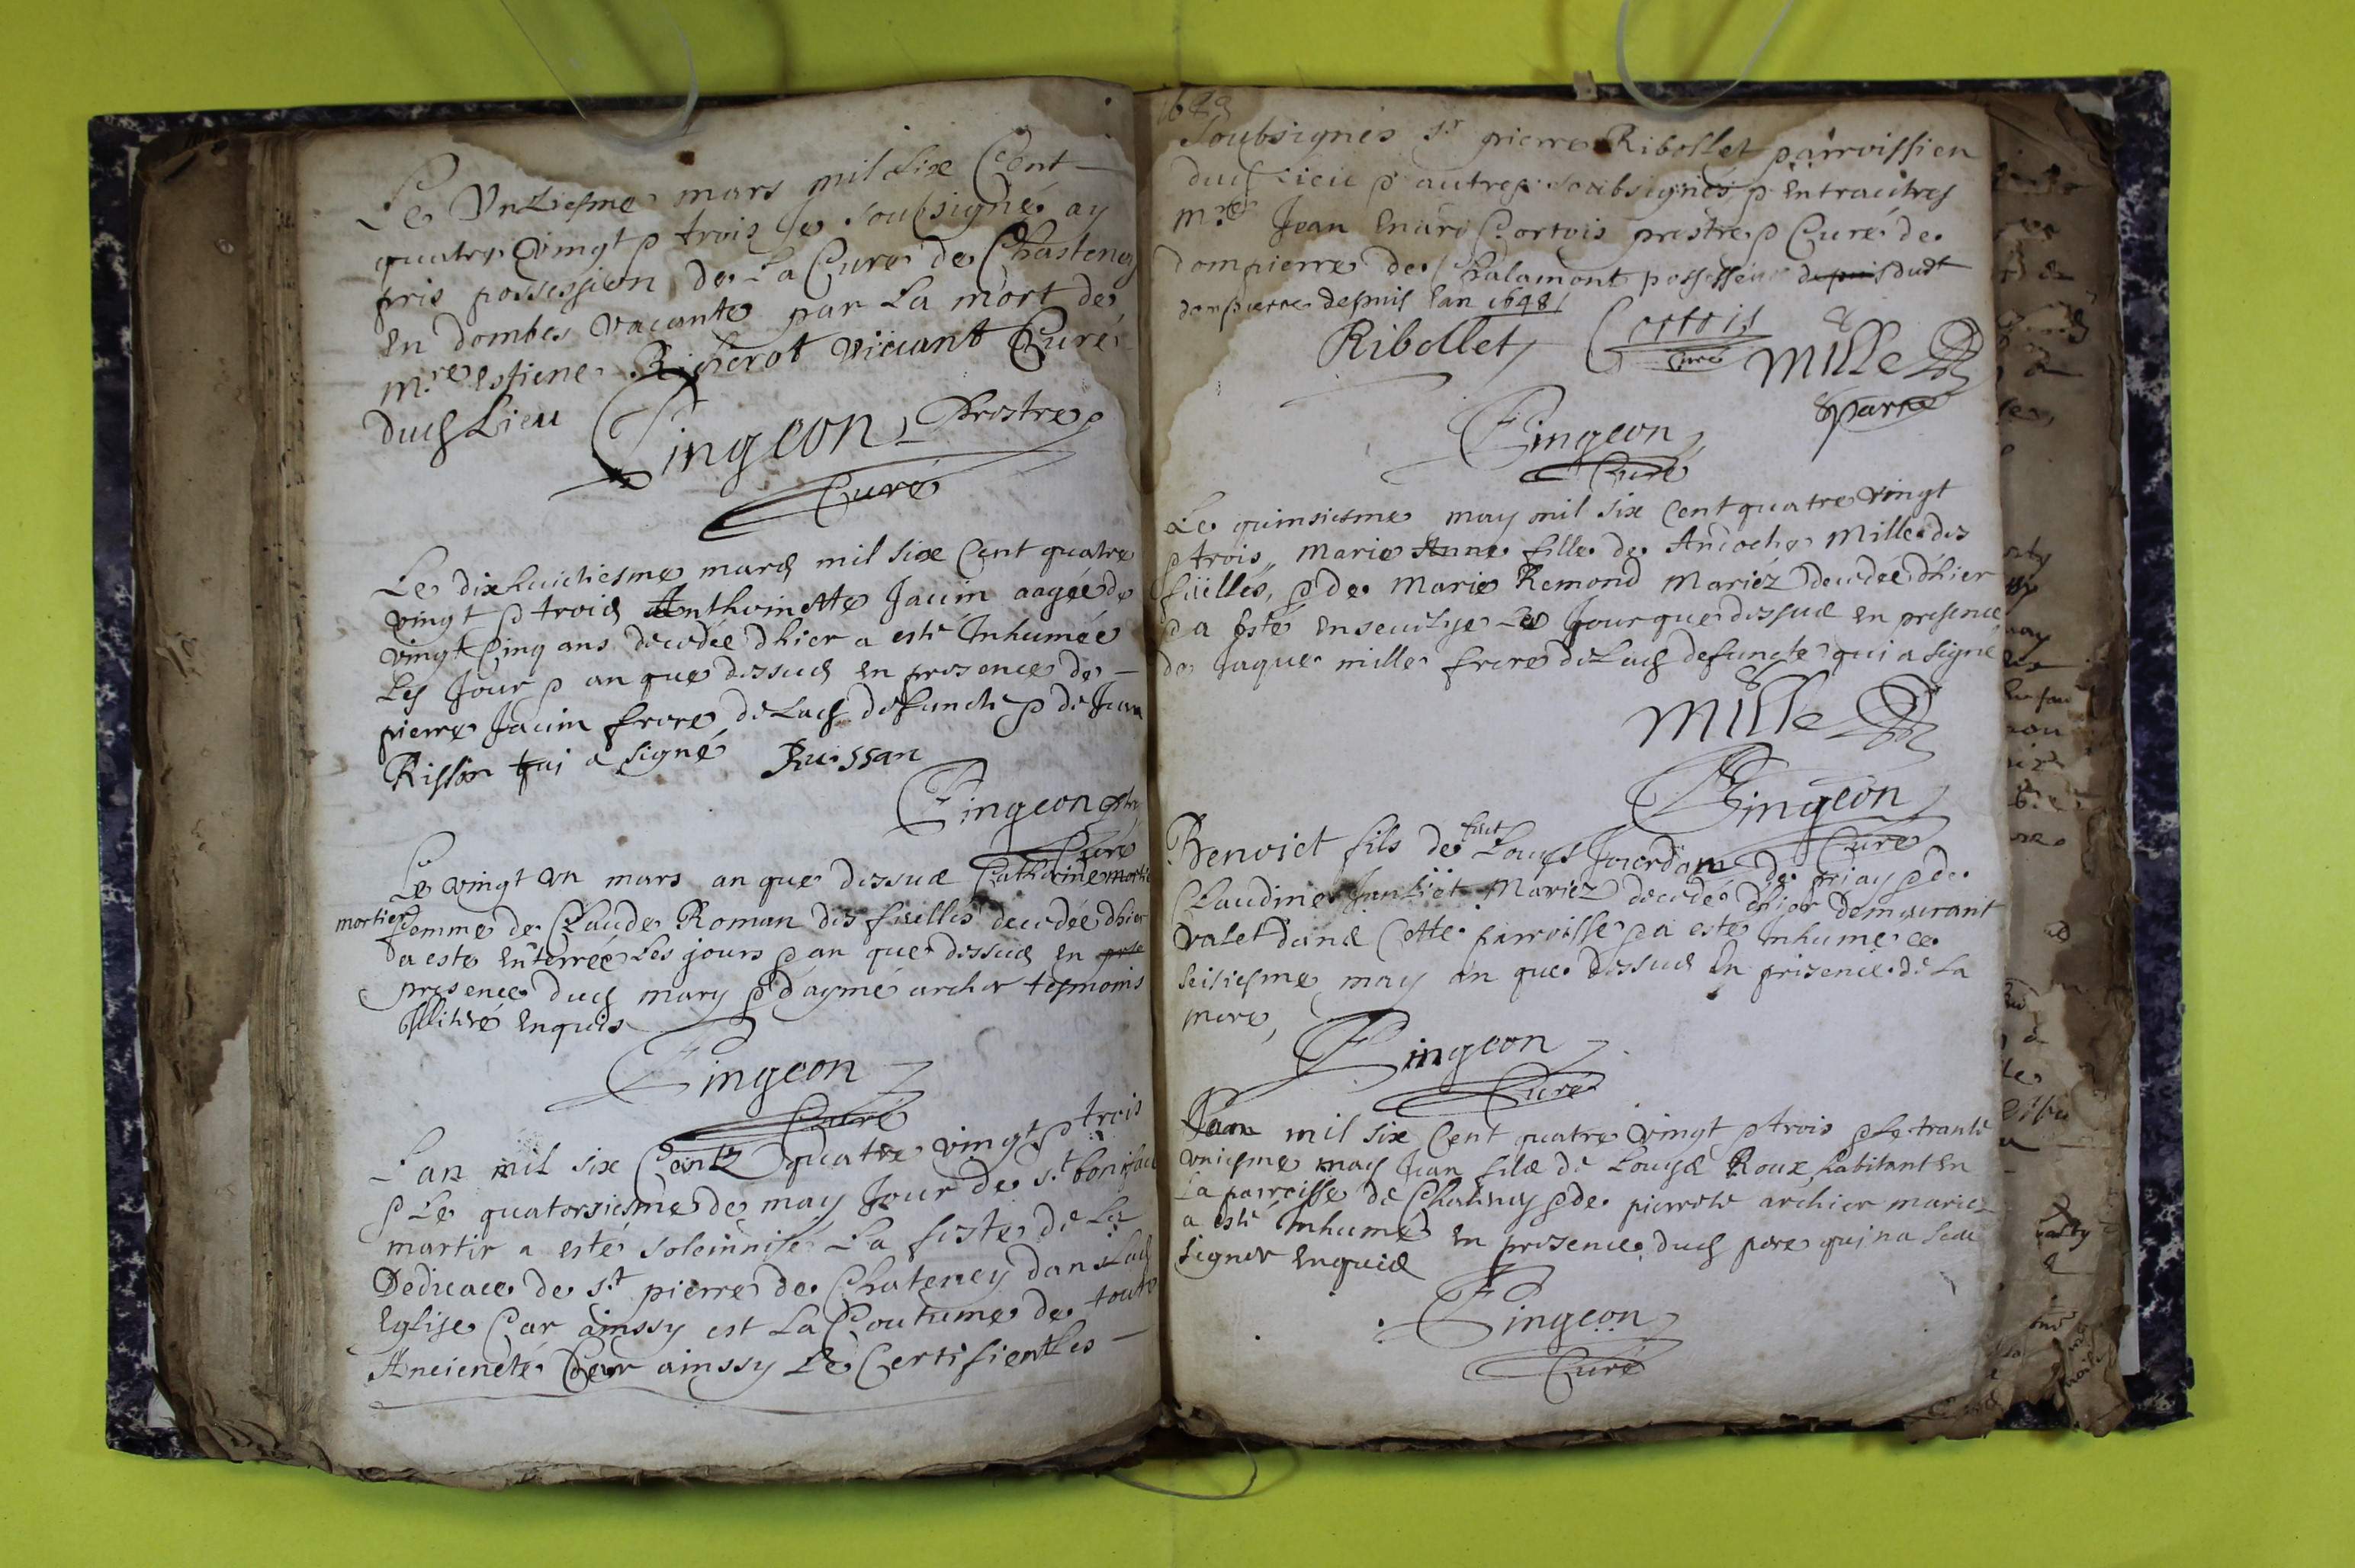 Le Unziesme mars mil six Cent
quatre vingt & trois Je soubsigné ay
pris possession de La Cure de Chasteney
En dombes vacante par La mort de
m.re estiene Richerot viuant Curé
dud Lieu
Pingeon prestre
Curé
Le dixhuictiesme mars mil six Cent quatre
vingt & trois Anthoinette Jauin aagée de
vingt Cinq ans decedée dhier a esté Inhumée
Les Jour & an que dessus en presence de
pierre Jauin frere de Lad defuncte & de Jean
Risson qui a signé Ruissan
Pingeon
Curé
Le vingt un mars an que dessus Catherine mortie
mortier femme de Claude Roman des fuelles decedée dhier
& a esté Enterrée Les jours & an que dessus en pre
presence dud mary & d'aymé archer tesmoins
Illitéré Enquis
Pingeon
Curé
Lan mil six Cents quatre vingt & trois
& Le quatorsiesme de may Jour de s.t boniface
martir a esté solemnisé La feste de La
Dedicace de s.t pierre de Chateney dans Lad
Eglise Car ainssy est La Coutume de toute
Ancieneté Car ainssy Le Certifient Les
Soubsignés s.r pierre Ribollet parroissien
dud Lieu & autres soubsignés & Entrautres
m.re Jean Cortois prestre & Curé de
dompierre de Chalamont possesseur depuis dudt
dompierre depuis Lan 1648
Ribollet Cortois
Curé
Mille
Pingeon
Curé
Le quinsiesme may mil six Cent quatre vingt
& trois Marie Anne fille de Andoche Mille des
fuëlles, & de Marie Remond Mariéz decedée dhier
& a esté Enseuelye Le Jour que dessus en presence
de Jaque mille frere de Lad defuncte qui a signé
Mille
Pingeon
Curé
Benoict fils de fut Louys Jourdan de priay & de
Claudine Mariéz decedé dhier demeurant
valet dans Cette parroisse & a esté Inhumé Ce
seisiesme may an que dessus En presence de La
mere,
Pingeon
Curé
Lan mil six Cent quatre vingt & trois & Le trante
uniesme may Jean fils de Louys Roux habitant En
La parroisse de Chateney & de pierrete archier mariez
a esté Inhumé en presence dud pere qui na sceu
signer Enquis
Pingeon
Curé